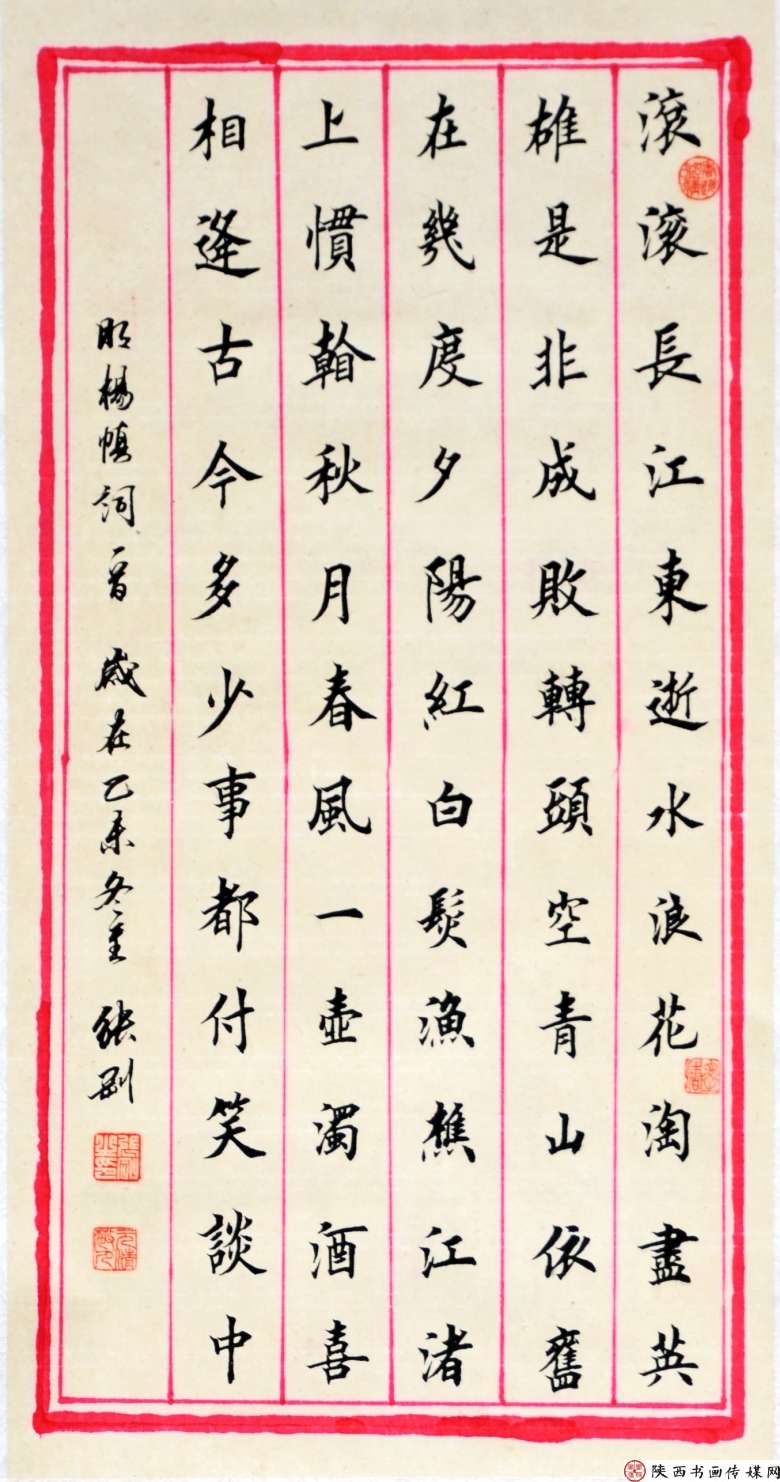 滾滾長江東逝水浪花淘盡英
雄是非成敗轉頭空青山依舊
在幾度夕陽紅白髮漁樵江渚
上慣看秋月春風一壺濁酒喜
相逢古今多少事都付笑談中
明楊慎詞一首 歲在乙未冬至 張剛
陕西书画传媒网